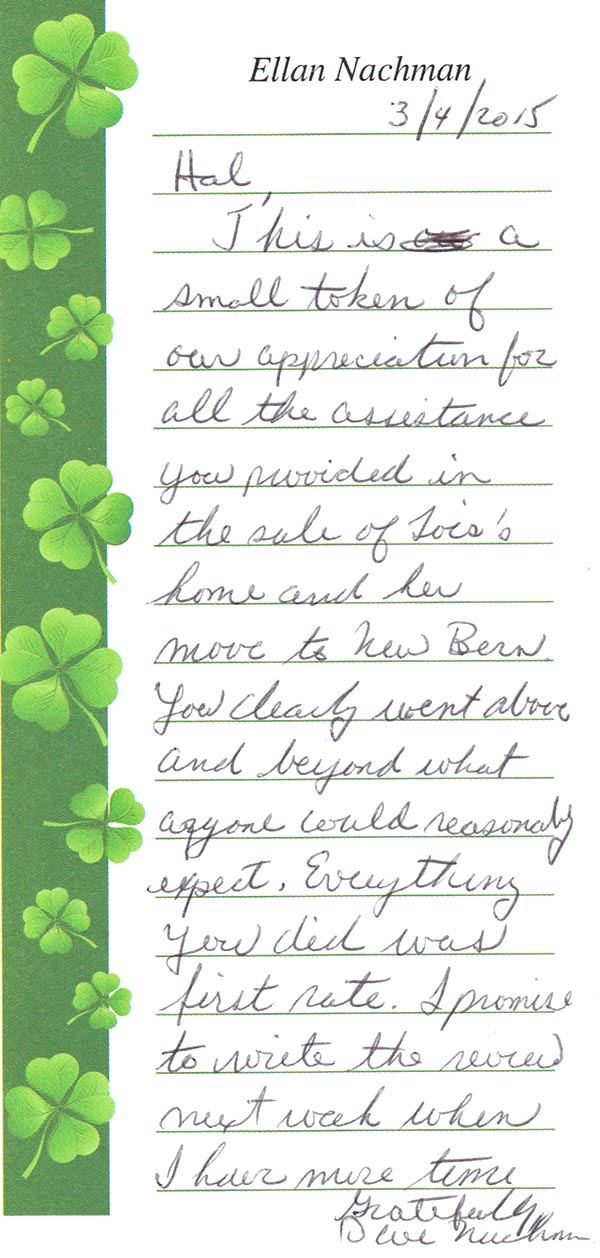 Ellan Nachman
3/4/2015
Hal,
This is a
small token of
our appreciation for
all the assistance
you provided in
the sale of Lois's
home and her
move to New Bern.
You clearly went above
and beyond what
anyone could reasonably
expect. Everything
you did was
first rate. I promise
to write the review
next week when
I have more time
Gratefully
Dave Nachman